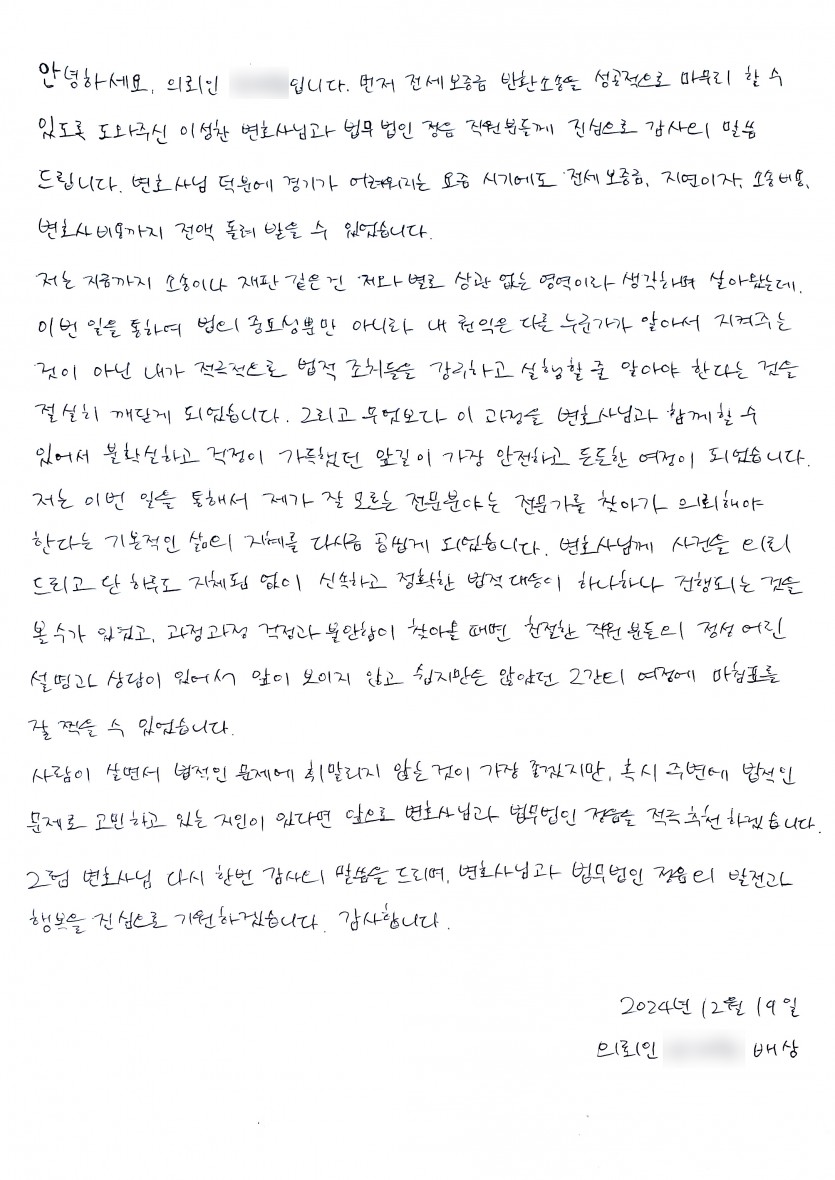 안녕하세요, 의뢰인 입니다. 먼저 전세보증금 반환소송을 성공적으로 마무리 할 수
있도록 도와주신 이성찬 변호사님과 법무법인 정음 직원분들께 진심으로 감사의 말씀
드립니다. 변호사님 덕분에 경기가 어려워지는 요즘 시기에도 전세보증금, 지연이자, 소송비용,
변호사비용까지 전액 돌려 받을 수 있었습니다.
저는 지금까지 소송이나 재판 같은건 저와 별로 상관 없는 영역이라 생각하며 살아왔는데,
이번 일을 통하여 법의 중요성뿐만 아니라 내 권익은 다른 누군가가 알아서 지켜주는
것이 아닌 내가 적극적으로 법적 조치들을 강구하고 실행할 줄 알아야 한다는 것을
절실히 깨닫게 되었습니다. 그리고 무엇보다 이 과정을 변호사님과 함께할 수
있어서 불확실하고 걱정이 가득했던 앞길이 가장 안전하고 든든한 여정이 되었습니다.
저는 이번 일을 통해서 제가 잘 모르는 전문분야는 전문가를 찾아가 의뢰해야
한다는 기본적인 삶의 지혜를 다시금 곱씹게 되었습니다. 변호사님께 사건을 의뢰
드리고 단 하루도 지체됨 없이 신속하고 정확한 법적대응이 하나하나 진행되는 것을
볼 수가 있었고, 과정과정 걱정과 불안함이 찾아올 때면 친절한 직원 분들의 정성 어린
설명과 상담이 있어서 앞이 보이지 않고 쉽지만은 않았던 그간의 여정에 마침표를
잘 찍을 수 있었습니다.
사람이 살면서 법적인 문제에 휘말리지 않는 것이 가장 좋겠지만, 혹시 주변에 법적인
문제로 고민하고 있는 지인이 있다면 앞으로 변호사님과 법무법인 정음을 적극 추천하겠습니다.
그럼 변호사님 다시 한번 감사의 말씀을 드리며, 변호사님과 법무법인 정음의 발전과
행복을 진심으로 기원하겠습니다. 감사합니다.
2024년 12월 19일
의뢰인 배상